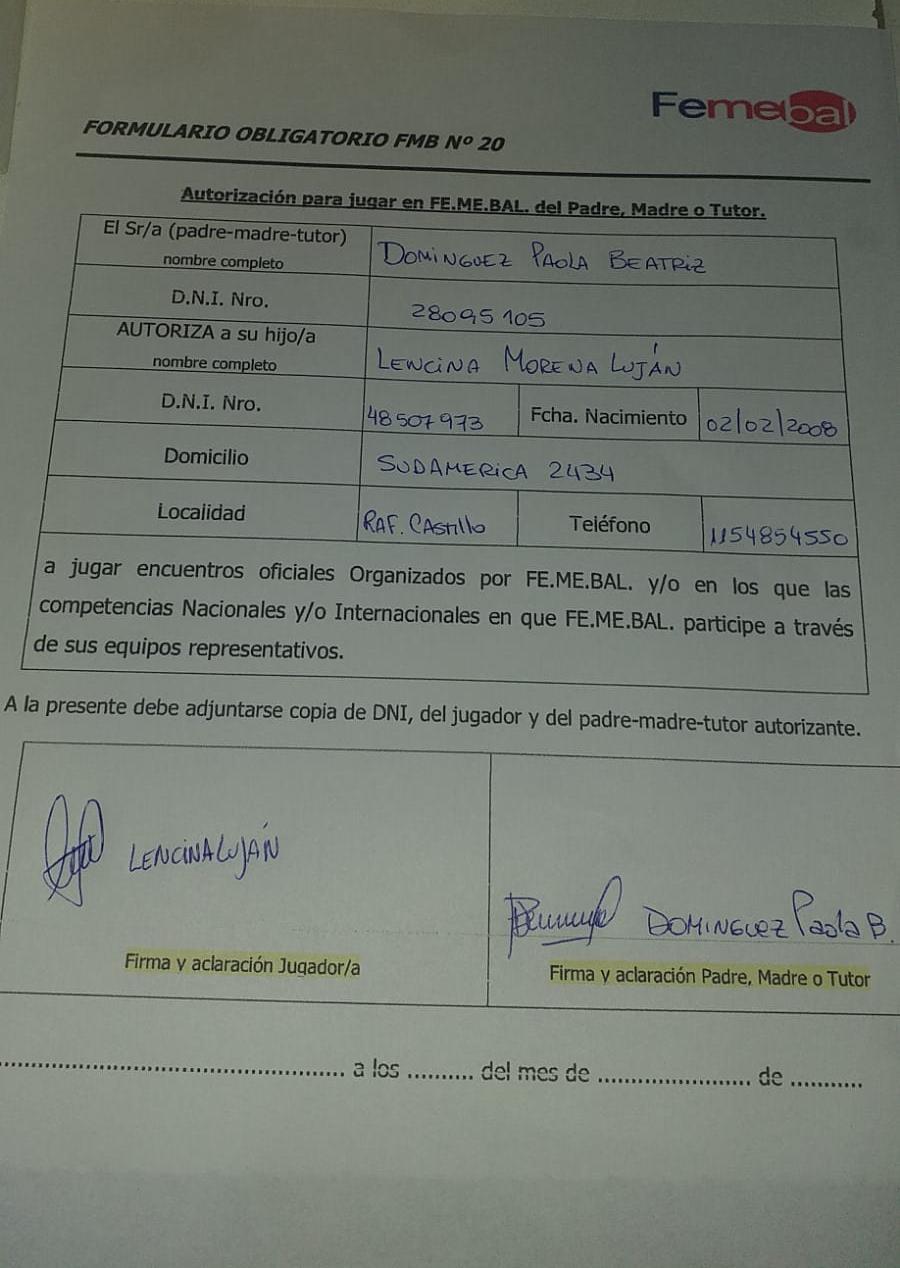 Femebal
FORMULARIO OBLIGATORIO FMB Nº 20
Autorización para jugar en FE.ME.BAL. del Padre, Madre o Tutor.
El Sr/a (padre-madre-tutor)
nombre completo
DOMINGUEZ PAOLA BEATRIZ
D.N.I. Nro.
28095105
AUTORIZA a su hijo/a
nombre completo
LENCINA MORENA LUJÁN
D.N.I. Nro.
48507973
Fcha. Nacimiento
02/02/2008
Domicilio
SUDAMERICA 2434
Localidad
RAF. CASTILLO
Teléfono
1154854550
a jugar encuentros oficiales Organizados por FE.ME.BAL. y/o en los que las
competencias Nacionales y/o Internacionales en que FE.ME.BAL. participe a través
de sus equipos representativos.
A la presente debe adjuntarse copia de DNI, del jugador y del padre-madre-tutor autorizante.
LENCINA LUJÁN
Firma y aclaración Jugador/a
DOMINGUEZ Paola B.
Firma y aclaración Padre, Madre o Tutor
................................................ a los .......... del mes de ....................... de ...........